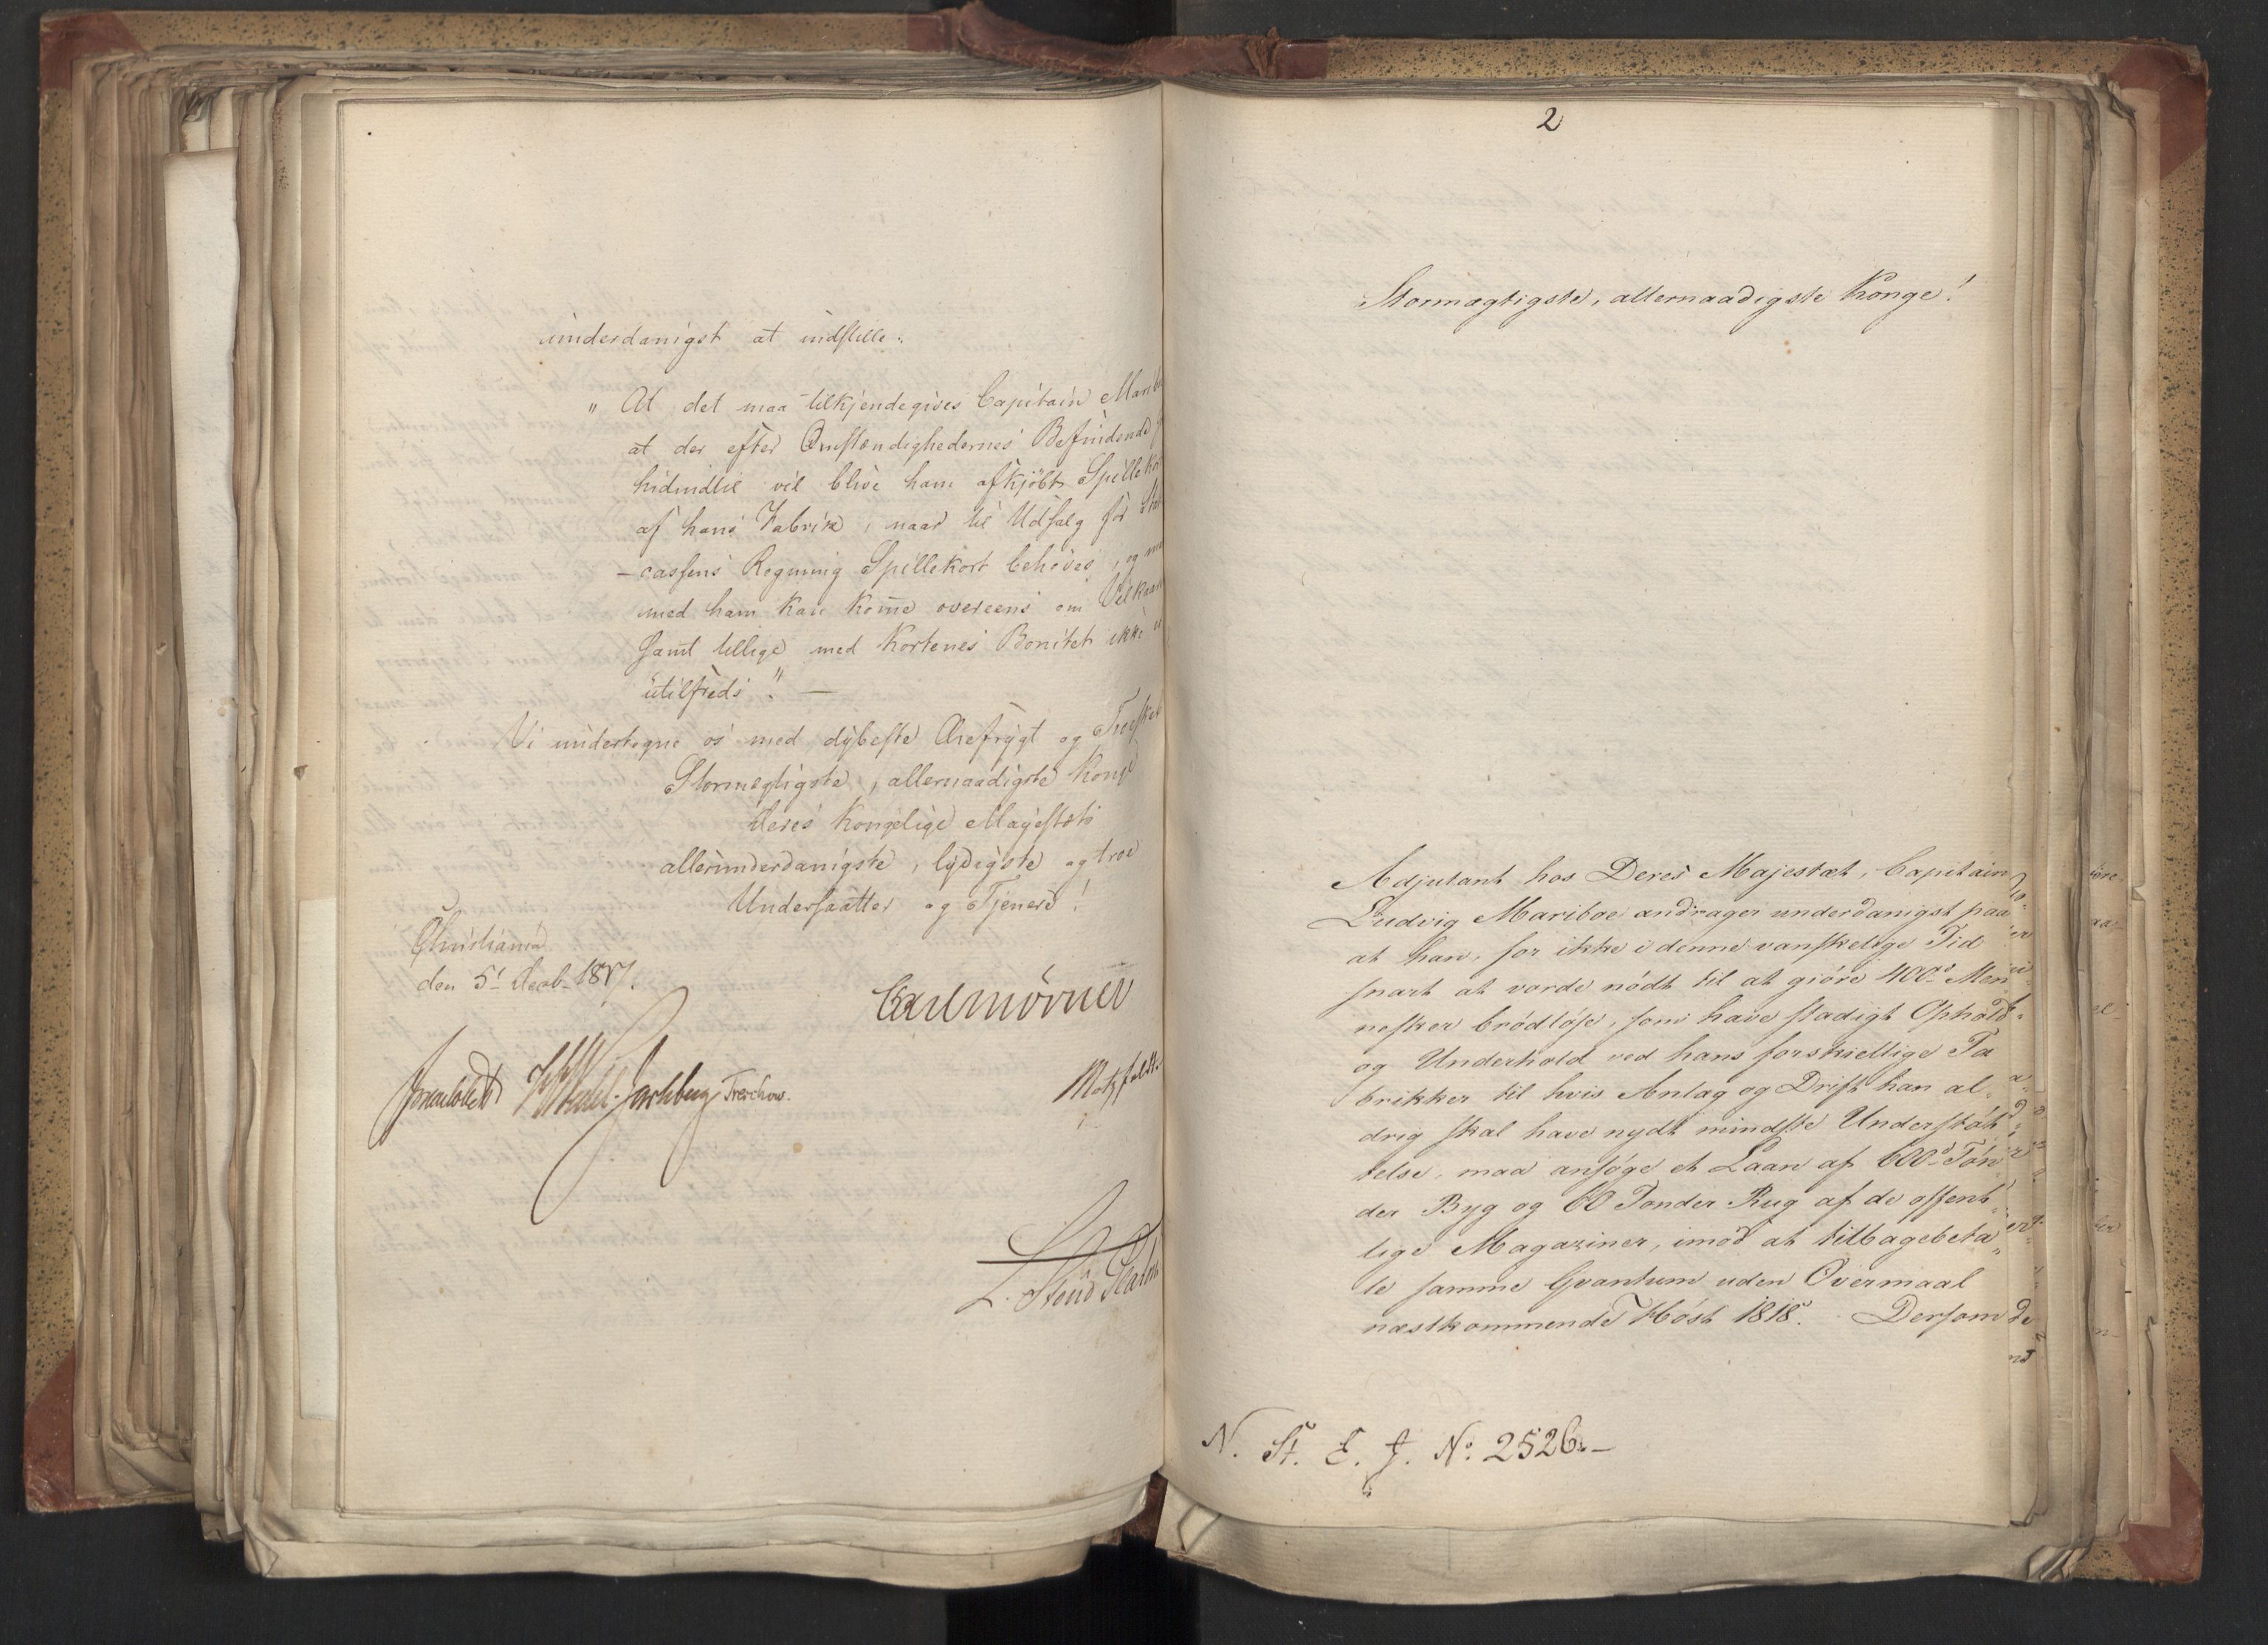 underdanigst at indstille:
" At det maa tilkjendegives Capitain Marib
at der efter Omstændighedernes Befindende
hidindtil vil blive ham afkjöbt Spillekor
af hans Fabrik, naar til Udsalg for Sta
-cassens Regning Spillekort behöves, og
med ham kan kom̄e overeens om Vilkaar
samt tillige med Kortenes Bonitet ikke
utilfreds". —
Vi undertegne os med dybeste Ærefrygt og Troesk
Stormægtigste, allernaadigste Konge
Deres Kongelige Majestæts
allerunderdanigste, lydigste og troe
Undersaatter og Tjenere!
Christiania
den 5t Decb. 1817.
Carl Mörner
Sommerhielm Wedel-Jarlsberg Treschow. Motzfeldt
L. Stoud Platou
2
Stormægtigste, allernaadigste Konge!
Adjutant hos Deres Majestæt, Capitain
Ludvig Mariboe andrager underdanigst paa
at han, for ikke i denne vanskelige Tid
snart at vorde nödt til at giöre 400de Men
nesker brödlöse, som have stadigt Ophold
og Underhold ved hans forskiellige Fa
brikker til hvis Anlæg og Drift han al-
drig skal have nydt mindste Understöt
telse, maa ansöge et Laan af 600de Tön
der Byg og 60 Tönder Rug af de offent
lige Magaziner, imod at tilbagebeta
le samme Qvantum uden Overmaal
næstkommende Höst 1818. Dersom
N. St. E. J. No: 2526.—